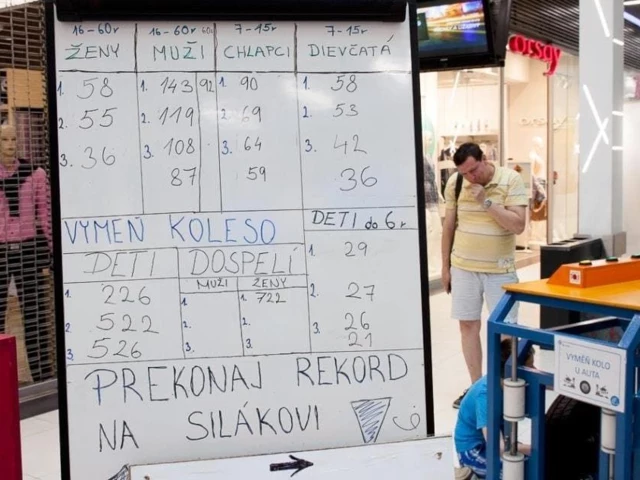 16-60r 16-60r 60r 7-15r 7-15r
ŽENY MUŽI CHLAPCI DIEVČATÁ
1. 58 1. 143 92 1. 90 1. 58
2. 55 2. 119 2. 69 2. 53
3. 36 3. 108 3. 64 3. 42
87 59 36
VYMEŇ KOLESO DETI do 6r
DETI DOSPELÍ 1. 29
MUŽI ŽENY
1. 226 1. 1. 722 2. 27
2. 522 2. 2. 3. 26
3. 526 3. 3. 21
PREKONAJ REKORD
NA SILÁKOVI
orsay
VYMEŇ KOLO
U AUTA